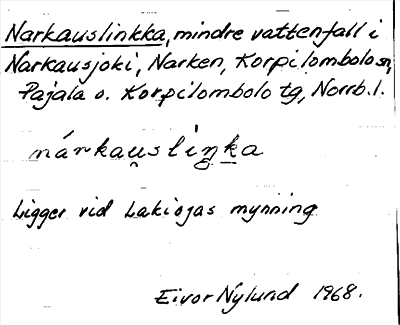 Narkauslinkka, mindre vattenfall i
Narkausjoki, Narken, Korpilombolo sn,
Pajala o. Korpilombolo tg, Norrb. l.
nárkau̯sliŋḵa
Ligger vid Lakiojas mynning
Eivor Nylund 1968.